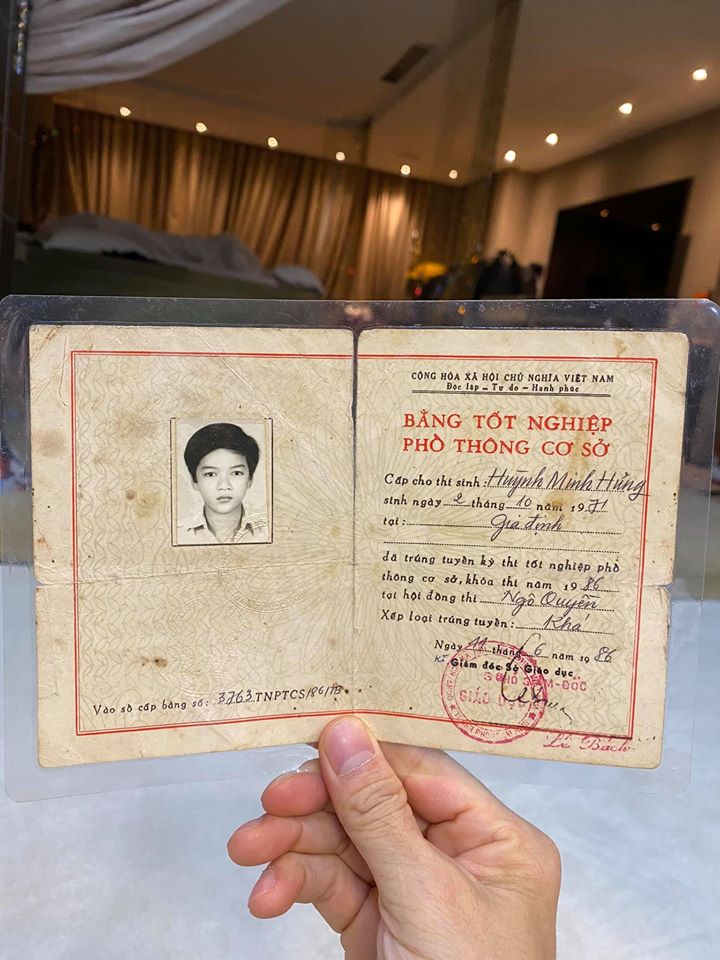 CỘNG HÒA XÃ HỘI CHỦ NGHĨA VIỆT NAM
Độc lập - Tự do - Hạnh phúc
BẰNG TỐT NGHIỆP
PHỔ THÔNG CƠ SỞ
Cấp cho thí sinh: Huỳnh Minh Hưng
sinh ngày 2 tháng 10 năm 1971
tại: Gia định
đã trúng tuyển kỳ thi tốt nghiệp phổ
thông cơ sở, khóa thi năm 1986
tại hội đồng thi Ngô Quyền
Xếp loại trúng tuyển: Khá
Ngày 11 tháng 6 năm 1986
Giám đốc Sở Giáo dục
GIÁO DỤC
Lê Bách
Vào sổ cấp bằng số: 3763.TNPTCS/86/